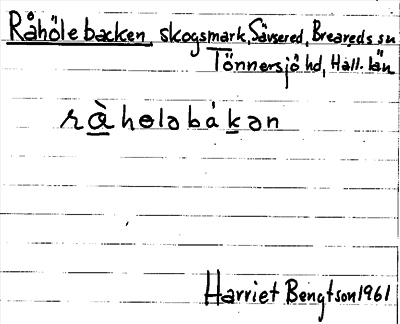 Råhöle backen, skogsmark, Sävsered, Breareds sn
Tönnersjö hd, Hall. län
rà̱hɵləbák̲ən
Harriet Bengtson 1961